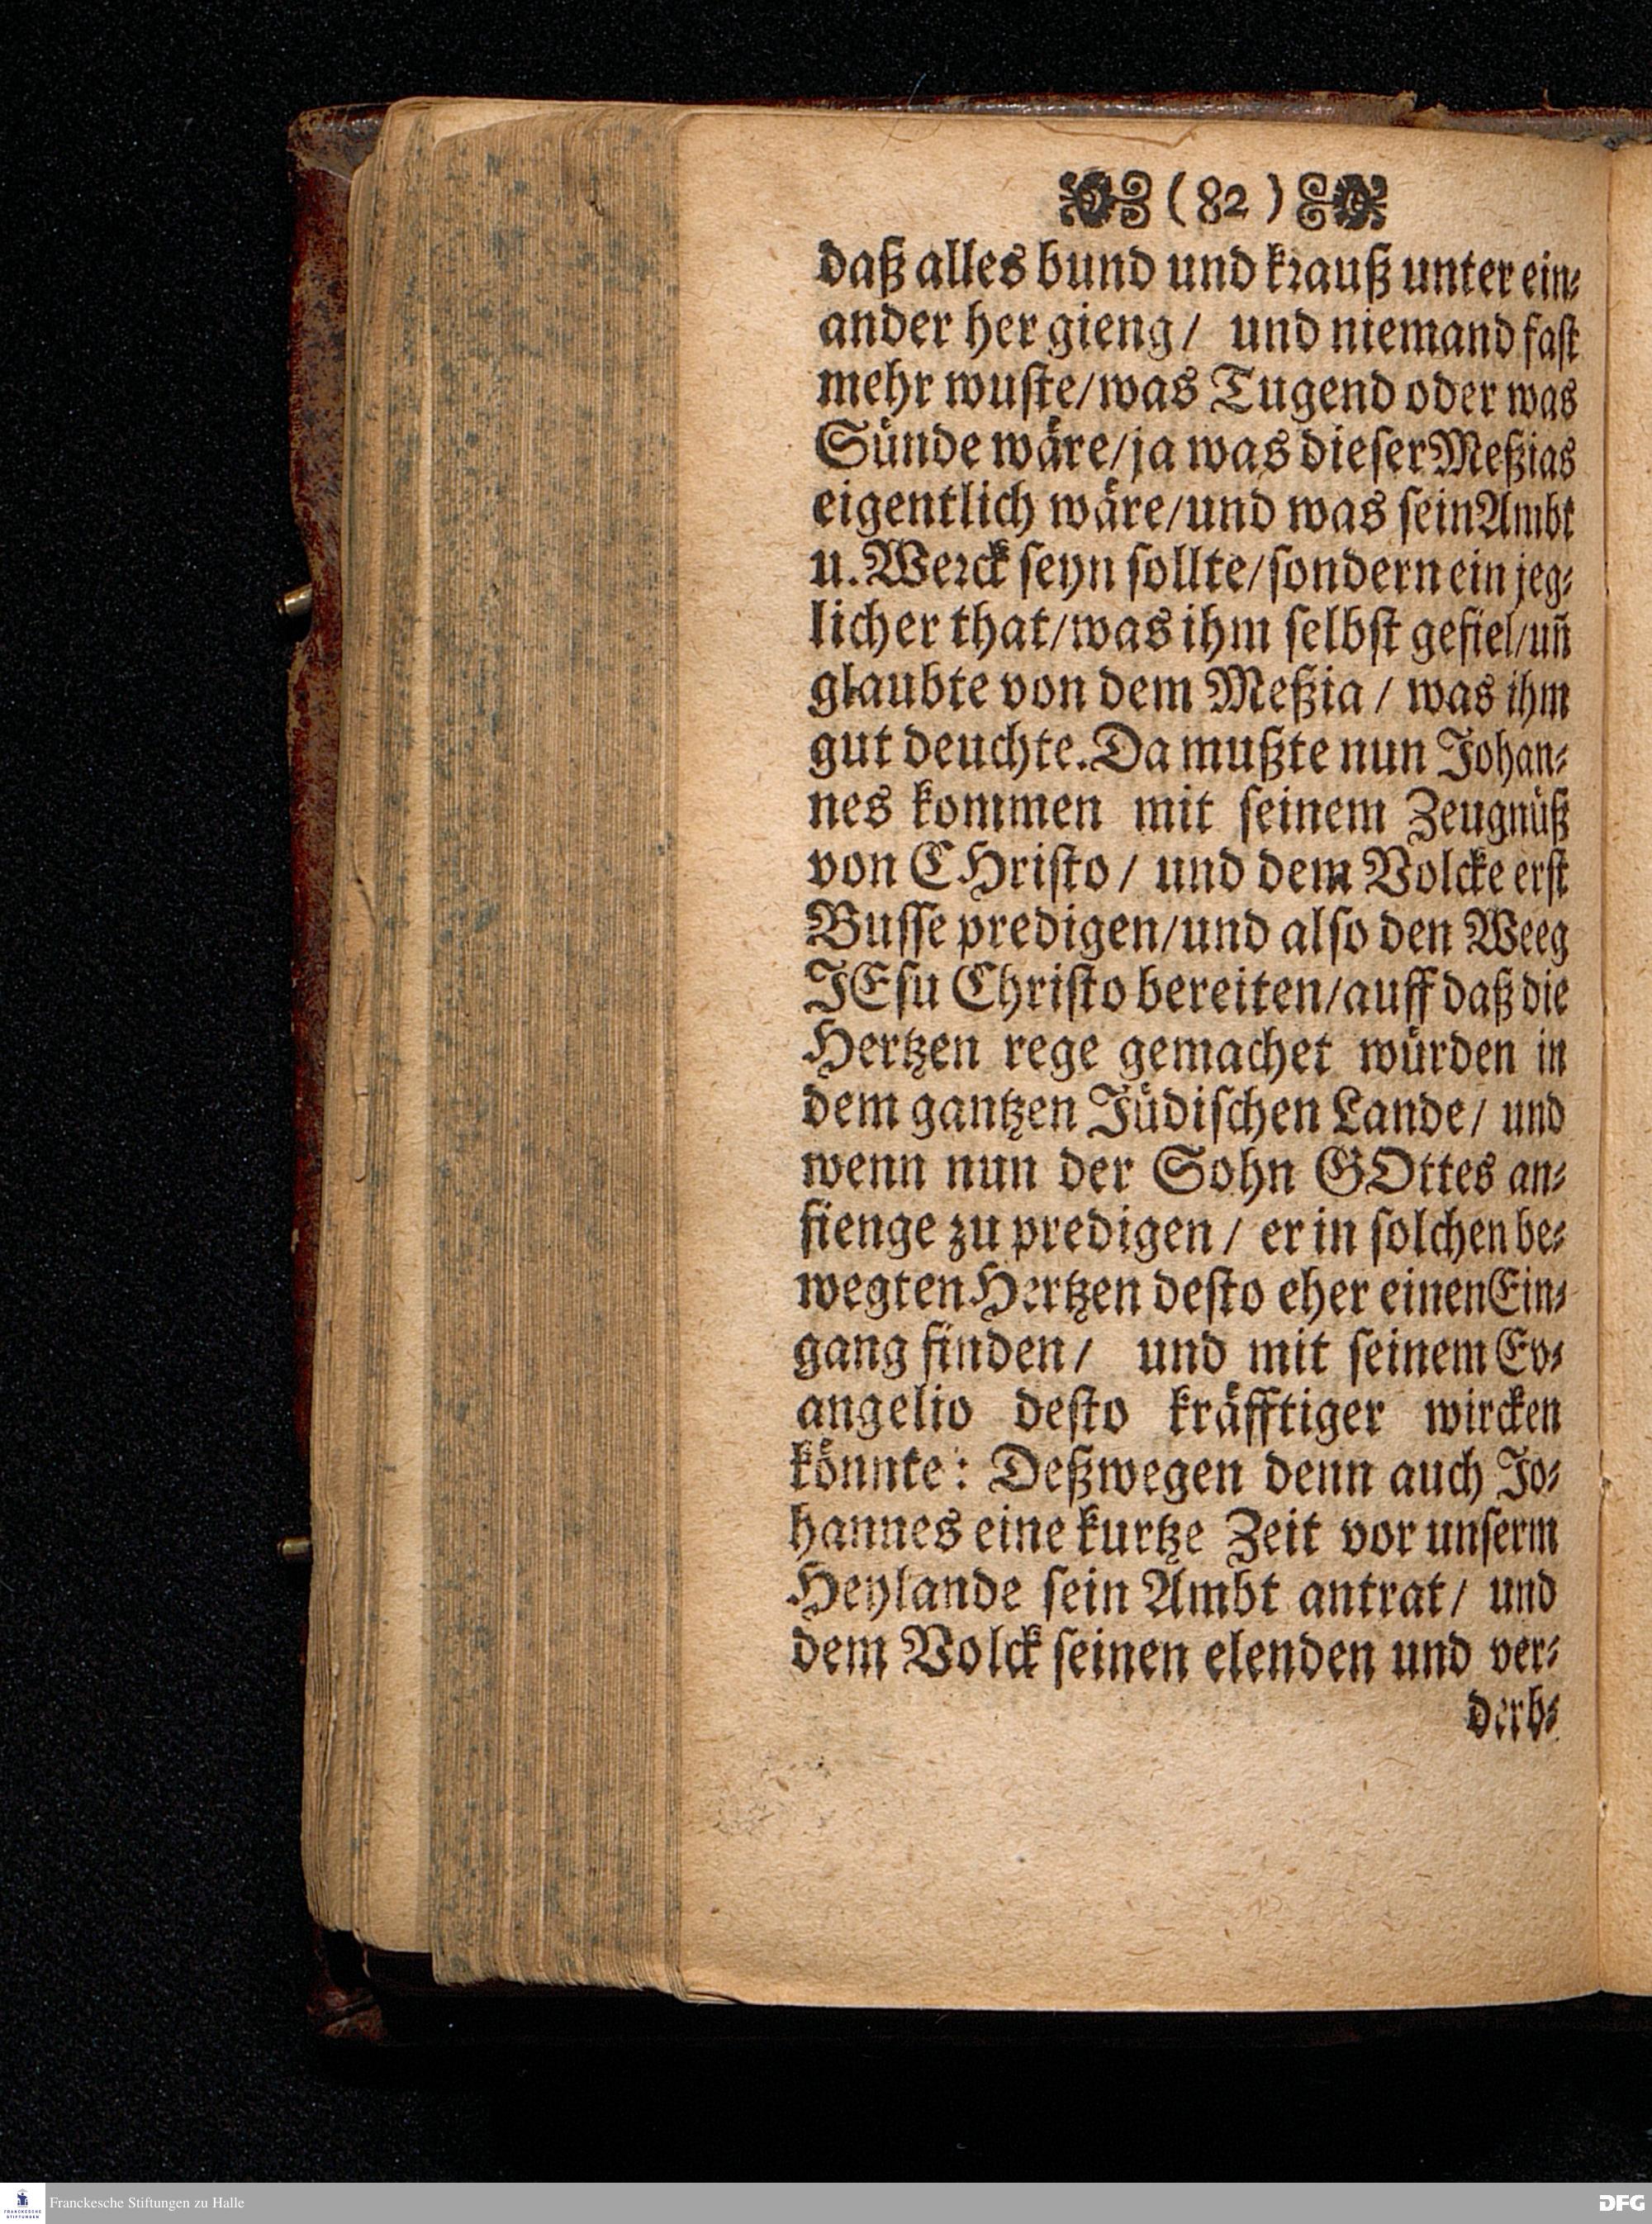 (82)
daß alles bund und krauß unter ein⸗
ander her gieng/ und niemand faſt
mehr wuſte/was Tugend oder was
Sünde wäre/ja was dieſer Meßias
eigentlich wäre/und was ſein Ambt
u. Werck ſeyn ſollte/ſondern ein jeg⸗
licher that/was ihm ſelbſt gefiel/uñ
glaubte von dem Meßia / was ihm
gut deuchte. Da mußte nun Johan⸗
nes kommen mit ſeinem Zeugnüß
von CHriſto / und dem Volcke erſt
Buſſe predigen/und alſo den Weeg
JEſu Chriſto bereiten/auff daß die
Hertzen rege gemachet würden in
dem gantzen Jüdiſchen Lande/ und
wenn nun der Sohn GOttes an⸗
fienge zu predigen / er in ſolchen be⸗
wegten Hertzen deſto eher einen Ein⸗
gang finden/ und mit ſeinem Ev⸗
angelio deſto kräfftiger wircken
könnte: Deßwegen denn auch Jo⸗
hannes eine kurtze Zeit vor unſerm
Heylande ſein Ambt antrat/ und
dem Volck ſeinen elenden und ver⸗
derb⸗
FRANCKESCHE STIFTUNGEN
Franckesche Stiftungen zu Halle
DFG